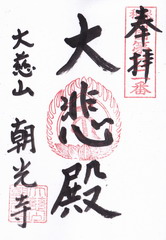 奉拝
大悲殿
大慈山
朝光寺